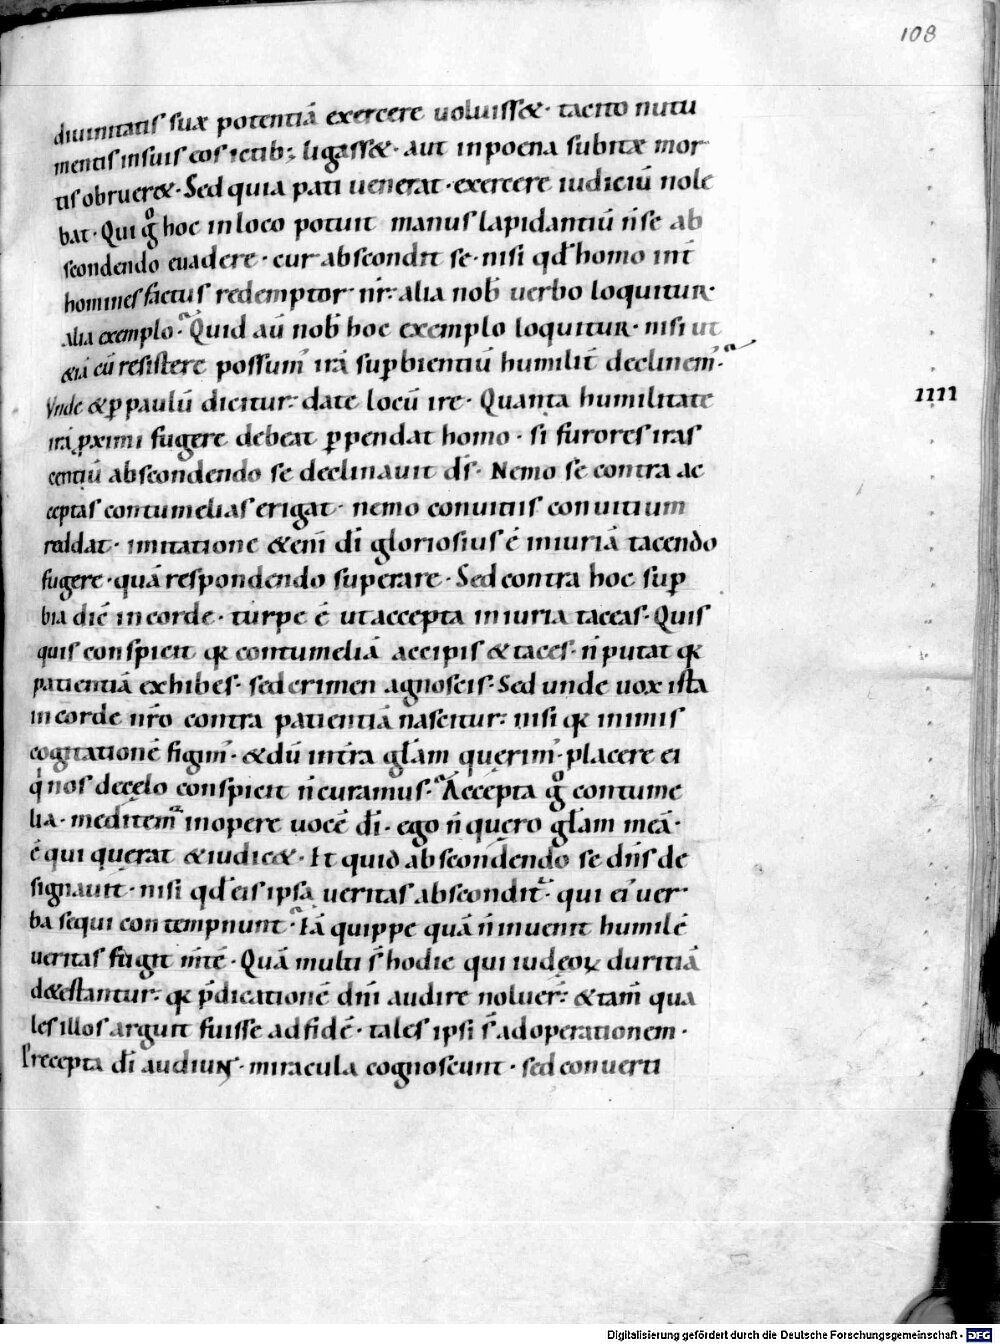 108
diuinitatis suæ potentiā exercere uoluiss&· tacito nutu
mentis in suis eos ictib; ligass&· aut in poena subitæ mor
tis obruer&· Sed quia pati uenerat· exercere iudiciū nole
bat· Qui g̊ hoc in loco potuit manus lapidantiū ń se ab
scondendo euadere· cur abscondit se· nisi qđ homo int̄
homines factus redemptor nr̄· alia nob̄ uerbo loquitur·
alia exemplo· Quid aū nob̄ hoc exemplo loquitur· nisi ut
&iā cū resistere possum̄ irā supbientiū humilit̄ declinem̄·
Vnde & ꝑ paulū dicitur· date locū ire· Quanta humilitate
irā ꝓximi fugere debeat ꝑpendat homo· si furores iras
centiū abscondendo se declinauit d̄s· Nemo se contra ac
ceptas contumelias erigat· nemo conuitiis conuitium
reddat· imitatione &eni̅ di̅ gloriosius ē iniuriā tacendo
fugere· quā respondendo superare· Sed contra hoc suꝑ
bia dic̄ in corde· turpe ē ut accepta iniuria taceas· Quis
quis conspicit qꝛ contumeliā accipis & taces· ń putat qꝛ
patientiā exhibes· sed crimen agnoscis· Sed unde uox ista
in corde nr̄o contra patientiā nascitur· nisi qꝛ in imis
cogitationē figim̄· & dū in terra gl̄am querim̄· placere ei
q̇ nos de celo conspicit ń curamus· Accepta g̊ contume
lia· meditem̄ in opere uocē di̅· ego ń quero gl̄am meā·
ē qui querat & iudic&· It quid abscondendo se dn̄s de
signauit· nisi qđ eis ipsa ueritas abscondit̄· qui ei̅ uer
ba sequi contempnunt· Iā quippe quā ń inuenit humilē
ueritas fugit m̄tē· Quā multi s̄ hodie qui iudeoꝝ duritiā
d&estantur· qꝛ p̄dicationē dn̄i audire noluer̄· & tam̄ qua
les illos arguit fuisse ad fidē· tales ipsi s̄ ad operationem·
Precepta di̅ audiun̄t· miracula cognoscunt· sed conuerti
IIII
Digitalisierung gefördert durch die Deutsche Forschungsgemeinschaft - DFG